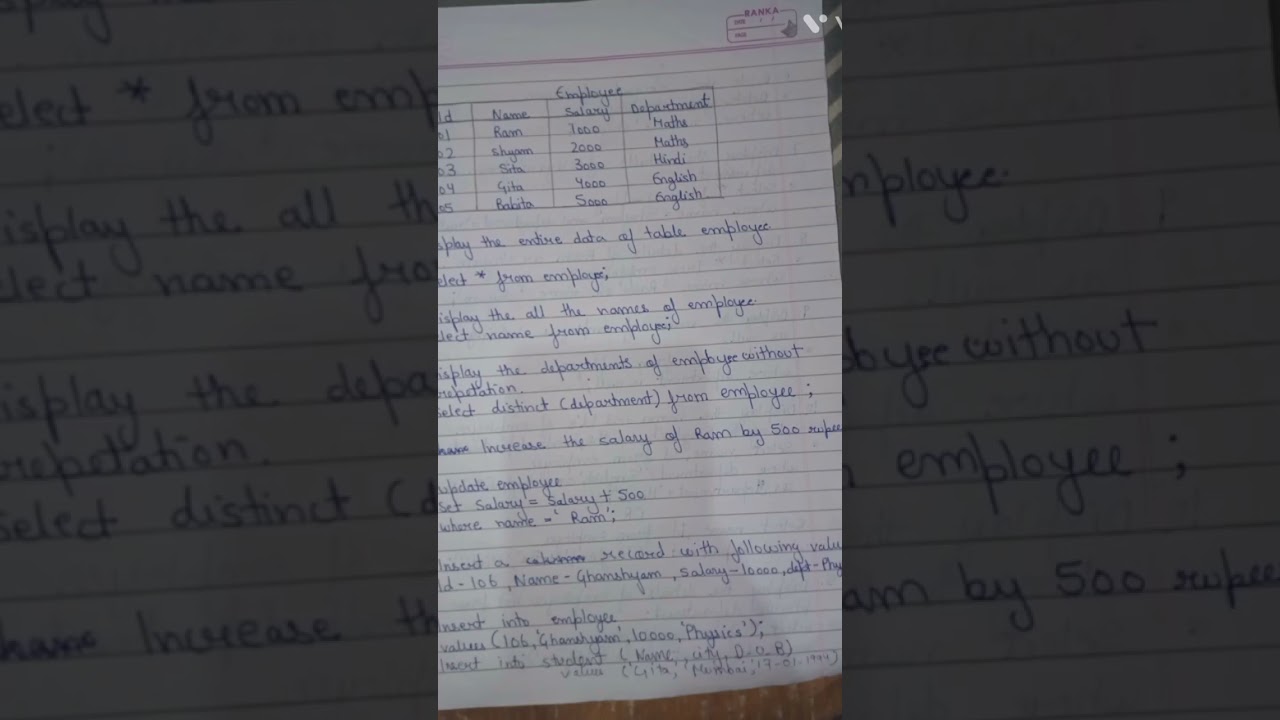 RANKA
Employee
Id Name Salary Department
01 Ram 1000 Maths
02 Shyam 2000 Maths
03 Sita 3000 Hindi
04 Gita 4000 English
05 Babita 5000 English
splay the entire data of table employee.
elect * from employe;
isplay the all the names of employee.
lect name from employe;
isplay the departments of employee without
repetation.
select distinct (department) from employee ;
Increase the salary of Ram by 500 rupee
update employee
set salary = salary + 500
where name = 'Ram';
Insert a record with following valu
Id - 106, Name - Ghanshyam, salary - 10000, dept - Phy
Insert into employee
values (106, 'Ghanshyam', 10000, 'Physics');
Insert into student (Name, city, D-O-B)
values ('Gita', 'Mumbai', '17-01-1994')